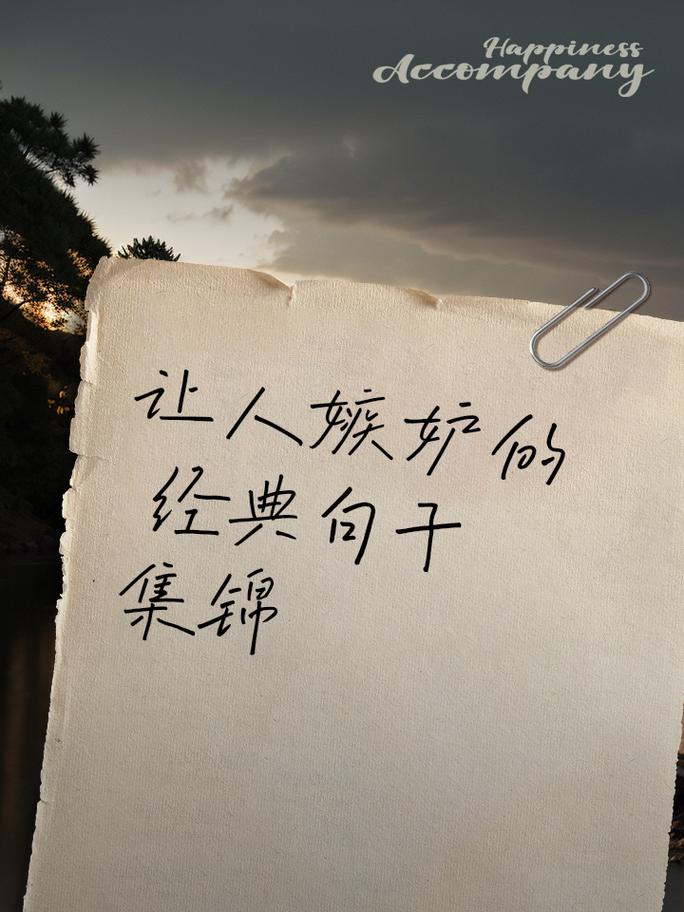 Happiness
Accompany
让人嫉妒的
经典句子
集锦